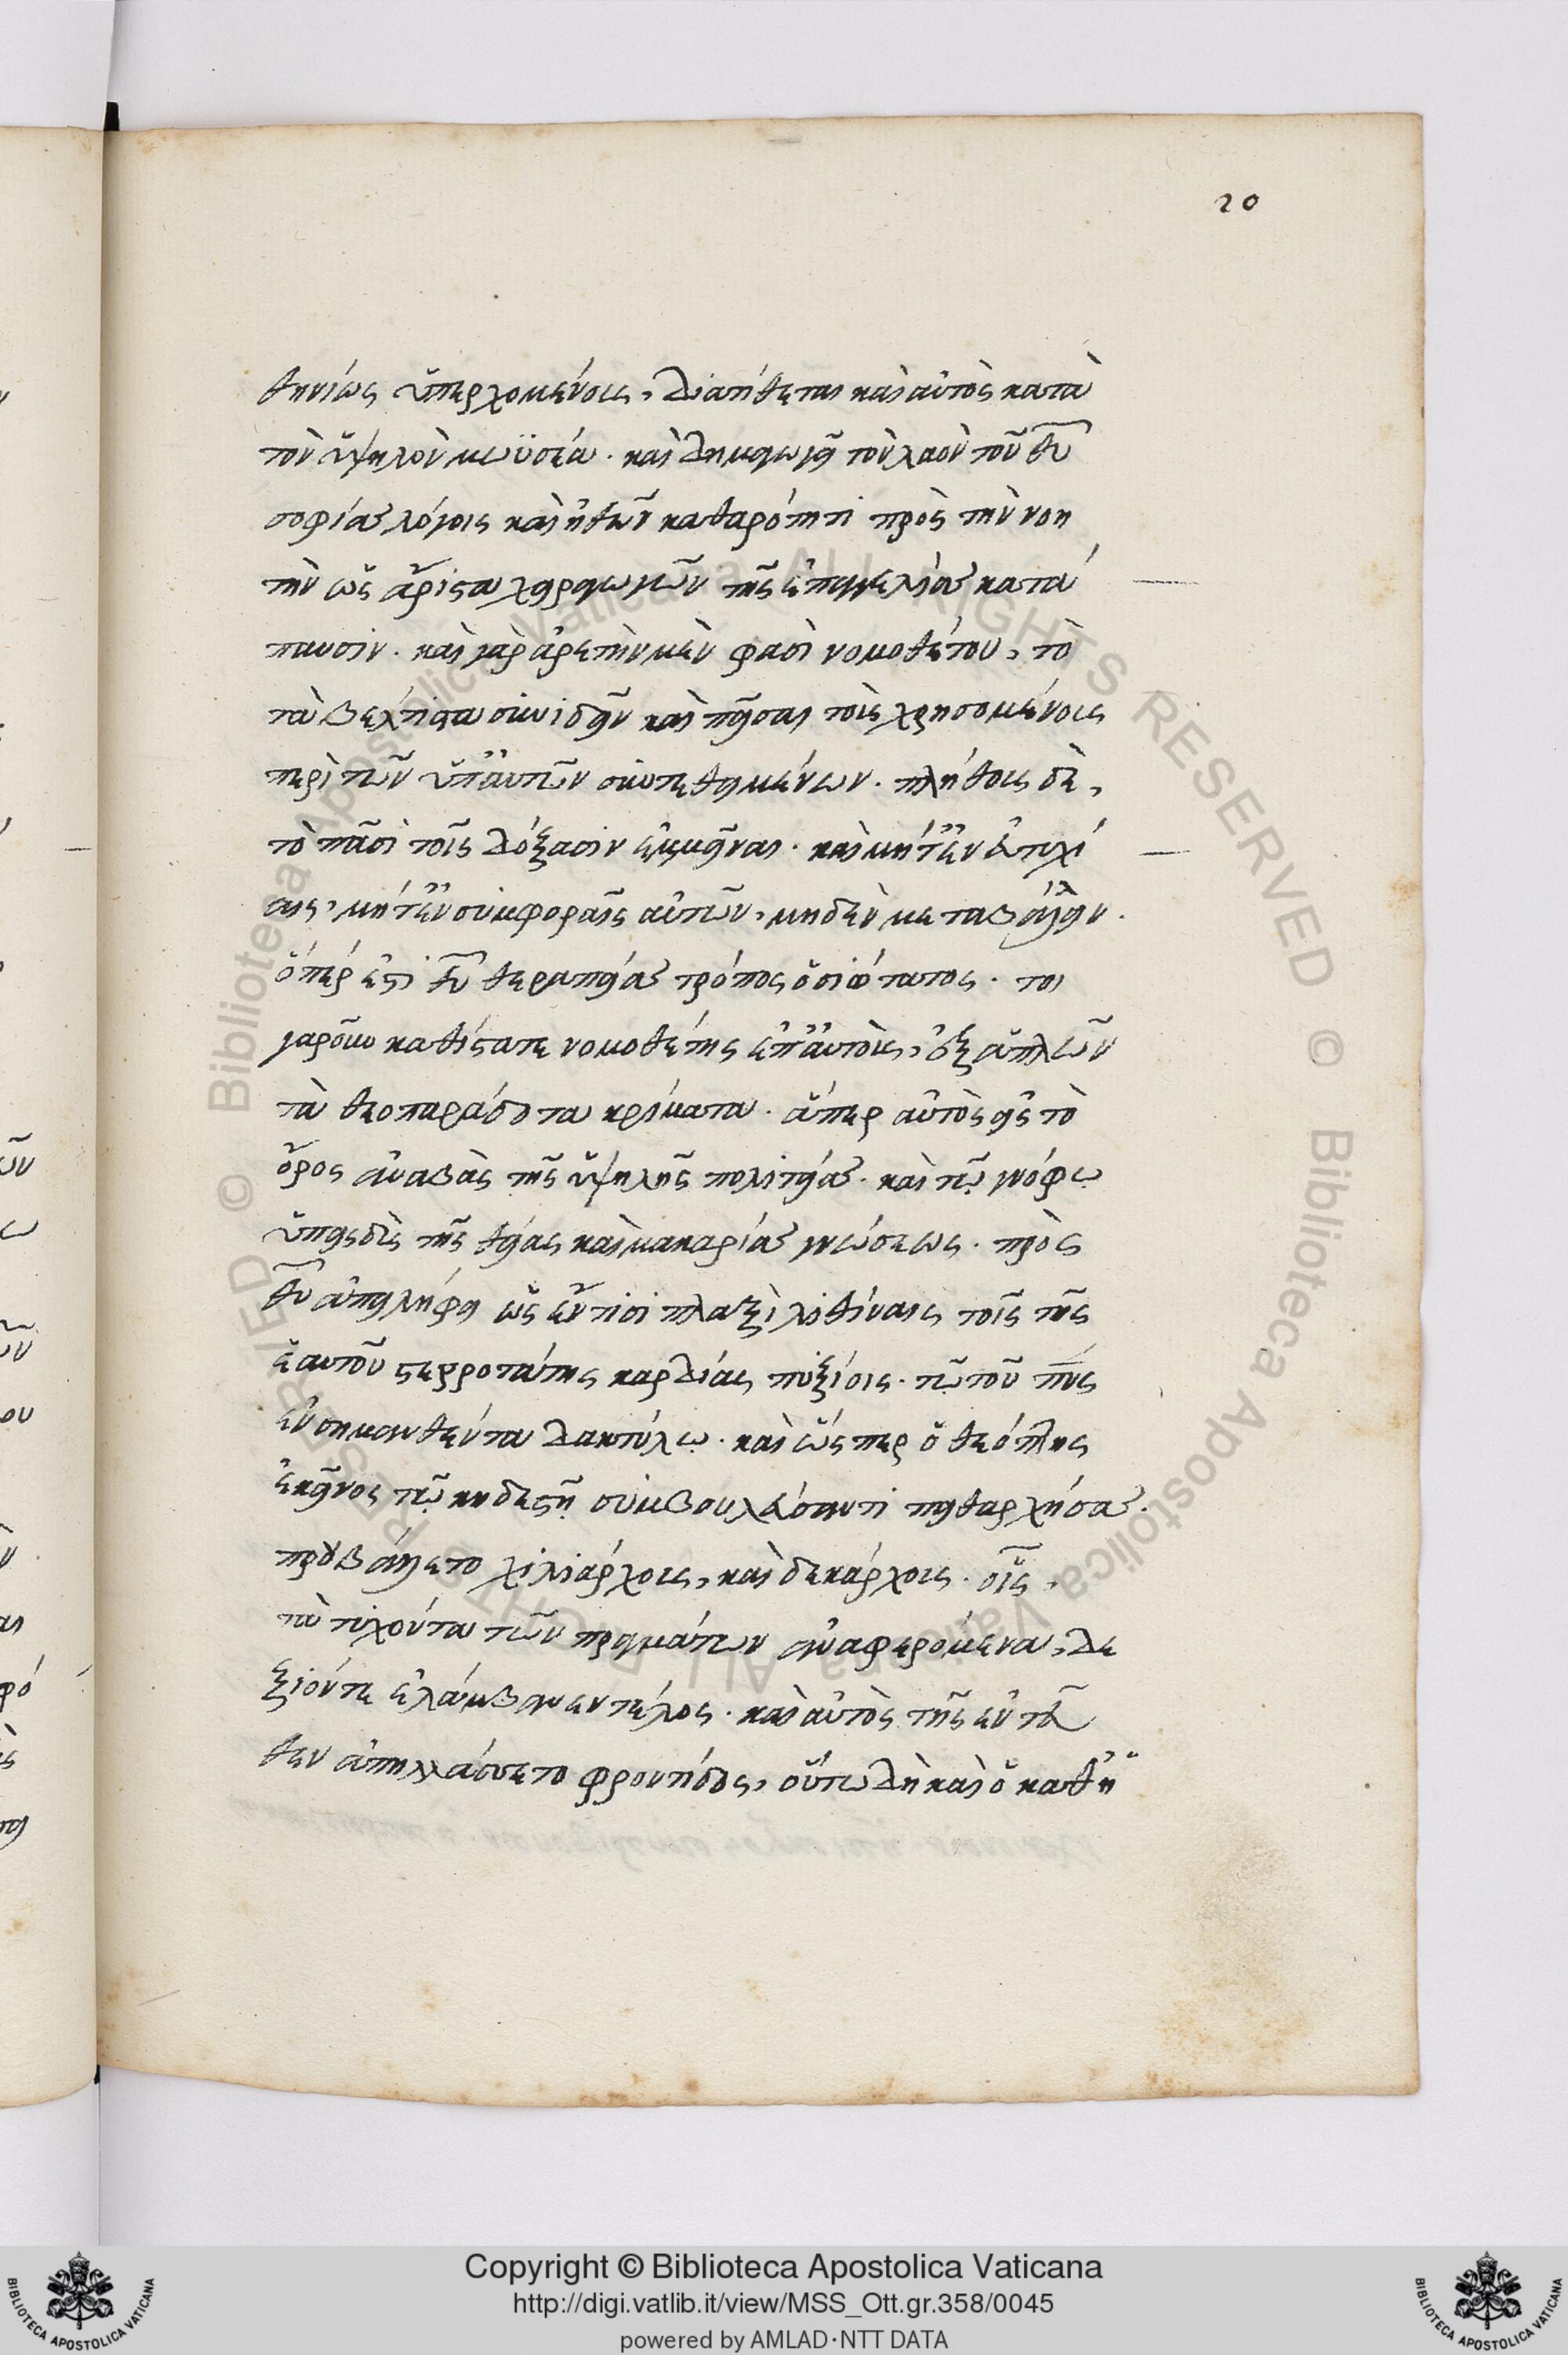 20
θηνίως ὑπερχομένοις, διατίθεται καὶ αὐτὸς κατὰ
τὸν ὑψηλὸν μωϋσέα. καὶ δημαγωγεῖ τὸν λαὸν τοῦ θυ
σοφίας λόγοις καὶ ἠθῶν καθαρότητι πρὸς τὴν νοη
τὴν ὡς ἄριστα χειραγωγῶν τῆς ἐπαγγελίας κατά
παυσιν. καὶ γὰρ ἀρετὴν μὲν φασὶ νομοθέτου, τὸ
τὰ βέλτιστα συνιδεῖν καὶ πεῖσαι τοὺς χρησομένους
περὶ τῶν ὑπ' αὐτῶν συντεθειμένων. πλήθους δὲ,
τὸ πᾶσι τοῖς δόξασιν ἐμμεῖναι. καὶ μήτ' ἐν εὐτυχί
αις, μήτ' ἐν συμφοραῖς αὐτῶν, μηδὲν μεταβάλλειν.
ὅπέρ ἐστι θυ θεραπείας τρόπος ὁσιώτατος. τοι
γαροῦν καθίσταται νομοθέτης ἐπ' αὐτοὺς, ἐξαπλῶν
τὰ θεοπαράδοτα κρίματα. ἅπερ αὐτὸς εἰς τὸ
ὄρος ἀναβὰς τῆς ὑψηλῆς πολιτείας. καὶ τῷ γνόφῳ
ὑπεισδὺς τῆς θείας καὶ μακαρίας γνώσεως. πρὸς
θυ ἀπειλήφει ὡς ἔν τισι πλαξὶ λιθίναις τοῖς τῆς
ἑαυτοῦ στερροτάτης καρδίας πυξίοις. τῷ τοῦ πνς
ἐνσημανθέντα δακτύλῳ. καὶ ὥσπερ ὁ θεόπτης
ἐκεῖνος τῷ κηδεστῇ συμβουλεύσαντι πειθαρχήσας.
προὐβάλλετο χιλιάρχους, καὶ δεκάρχους. οἷς,
τὰ τυχόντα τῶν πραγμάτων ἀναφερόμενα, δε
ξιόν τε ἐλάμβανεν τέλος. καὶ αὐτὸς τῆς ἐντεῦ
θεν ἀπηλλάσσετο φροντίδος, οὕτω δὴ καὶ ὁ καθ' ἡ
Copyright © Biblioteca Apostolica Vaticana
http://digi.vatlib.it/view/MSS_Ott.gr.358/0045
powered by AMLAD·NTT DATA